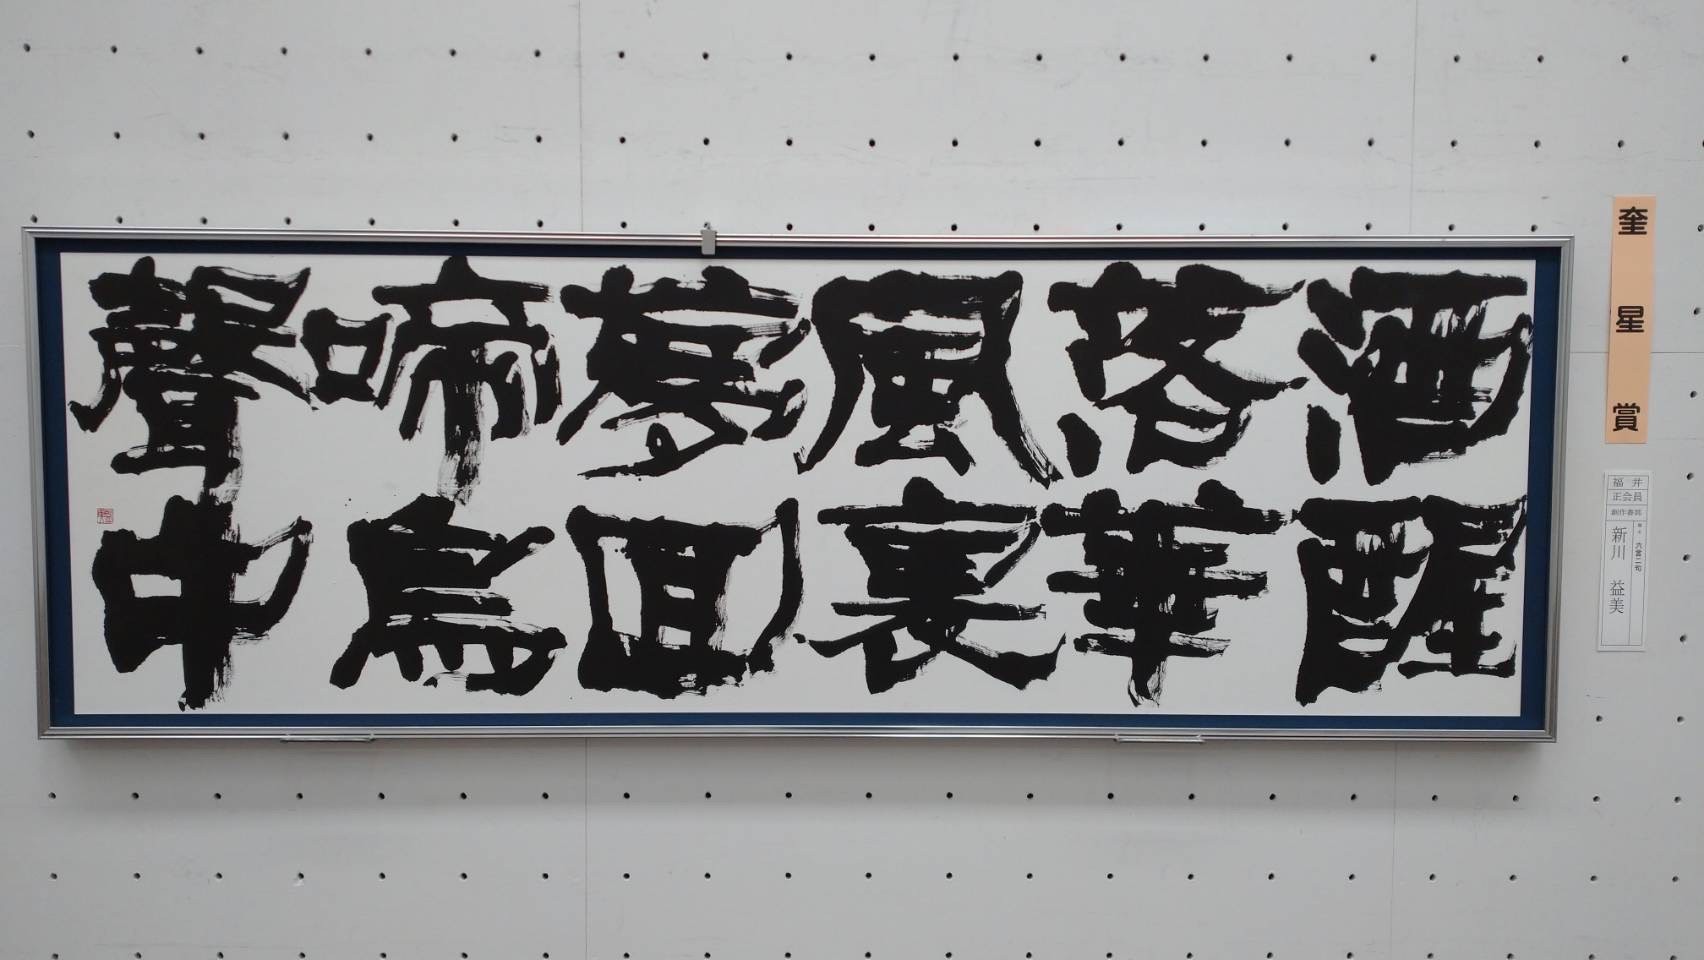 酒醒
落華
風裏
夢回
啼鳥
聲中
奎星賞
福井
正会員
創作春秋
六言二句
新川 益美